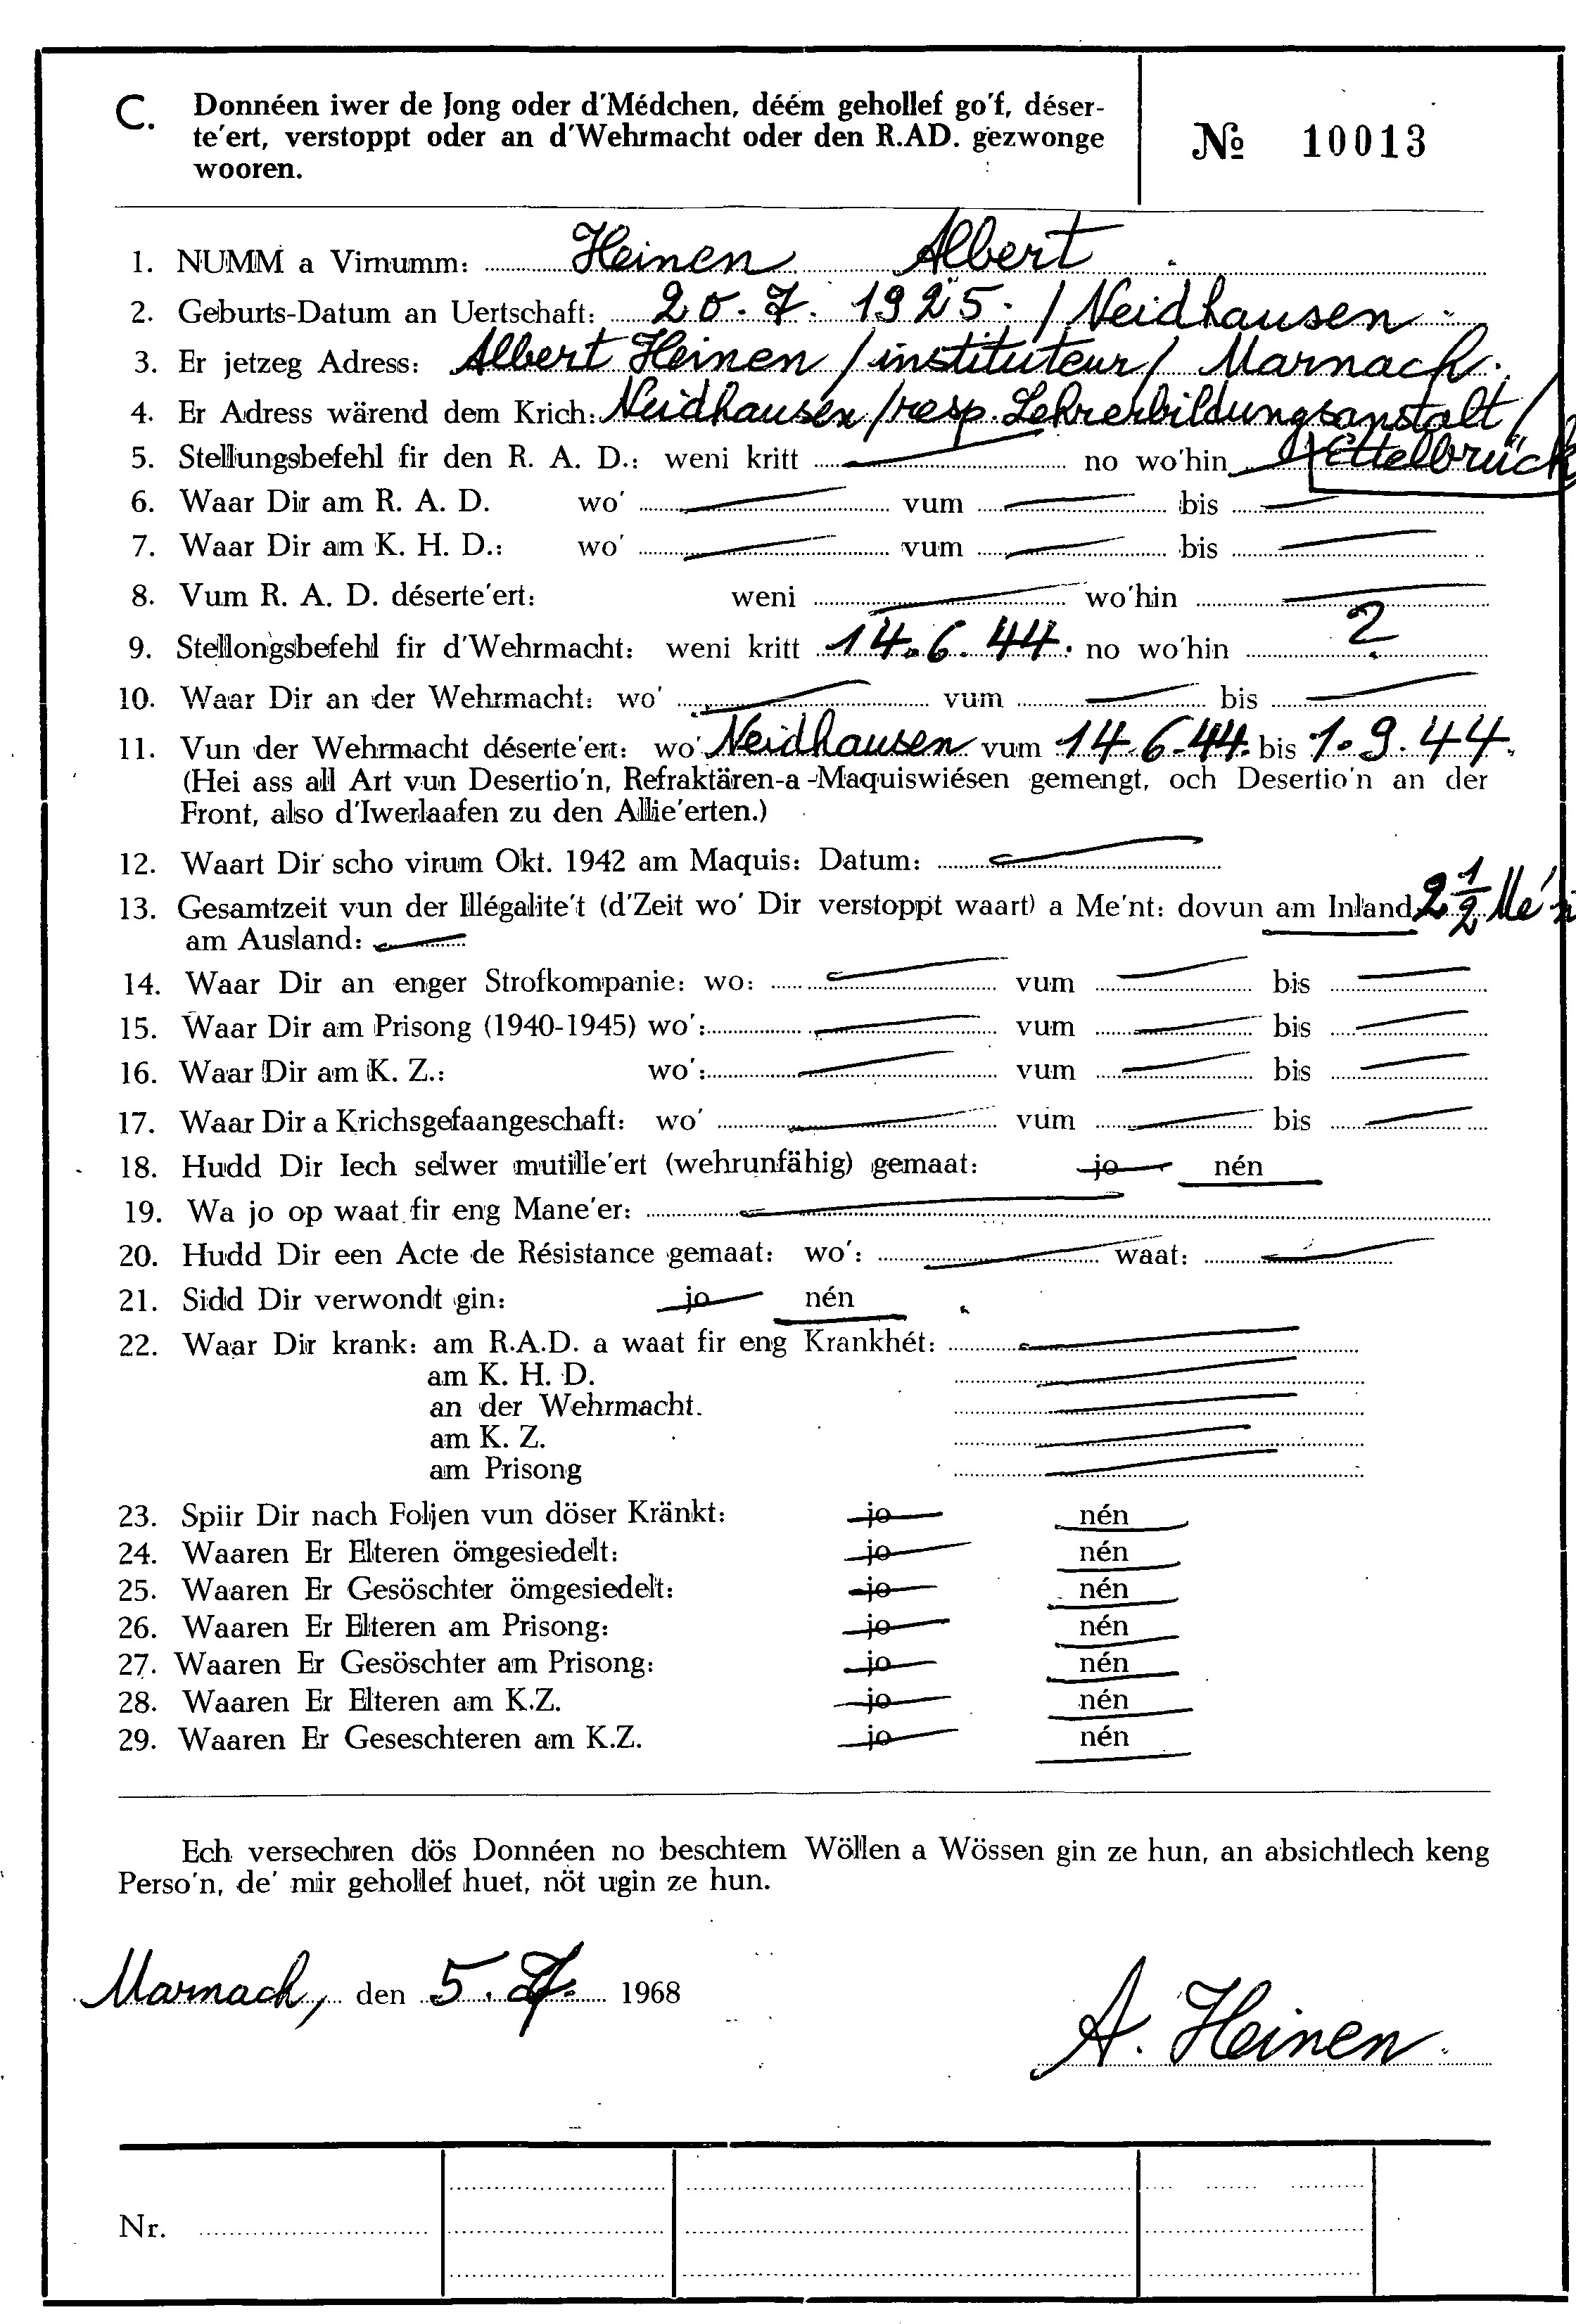 C. Donnéen iwer de Jong oder d'Médchen, déém gehollef go'f, déser-
te'ert, verstoppt oder an d'Wehrmacht oder den R.AD. gezwonge
wooren.
№ 10013
1. NUMM a Virnumm: Heinen Albert
2. Geburts-Datum an Uertschaft: 20.7.1925. / Neidhausen
3. Er jetzeg Adress: Albert Heinen / instituteur / Marnach.
4. Er Adress wärend dem Krich: Neidhausen / resp. Lehrerbildungsanstalt /
Ettelbrück
5. Stellungsbefehl fir den R. A. D.: weni kritt — no wo'hin —
6. Waar Dir am R. A. D. wo' — vum — bis —
7. Waar Dir am K. H. D.: wo' — vum — bis —
8. Vum R. A. D. déserte'ert: weni — wo'hin —
9. Stellongsbefehl fir d'Wehrmacht: weni kritt 14.6.44. no wo'hin ?
10. Waar Dir an der Wehrmacht: wo' — vum — bis —
11. Vun der Wehrmacht déserte'ert: wo' Neidhausen vum 14.6.44. bis 1.9.44.
(Hei ass all Art vun Desertio'n, Refraktären-a-Maquiswiésen gemengt, och Desertio'n an der
Front, also d'Iwerlaafen zu den Allie'erten.)
12. Waart Dir scho virum Okt. 1942 am Maquis: Datum: —
13. Gesamtzeit vun der Illégalite't (d'Zeit wo' Dir verstoppt waart) a Me'nt: dovun am Inland 2 1/2 Mé'n
am Ausland: —
14. Waar Dir an enger Strofkompanie: wo: — vum — bis —
15. Waar Dir am Prisong (1940-1945) wo': — vum — bis —
16. Waar Dir am K. Z.: wo': — vum — bis —
17. Waar Dir a Krichsgefaangeschaft: wo' — vum — bis —
18. Hudd Dir Iech selwer mutille'ert (wehrunfähig) gemaat: jo nén
19. Wa jo op waat fir eng Mane'er: —
20. Hudd Dir een Acte de Résistance gemaat: wo': — waat: —
21. Sidd Dir verwondt gin: jo nén
22. Waar Dir krank: am R.A.D. a waat fir eng Krankhét: —
am K. H. D. —
an der Wehrmacht. —
am K. Z. —
am Prisong —
23. Spiir Dir nach Foljen vun döser Kränkt: jo nén
24. Waaren Er Elteren ömgesiedelt: jo nén
25. Waaren Er Gesöschter ömgesiedelt: jo nén
26. Waaren Er Elteren am Prisong: jo nén
27. Waaren Er Gesöschter am Prisong: jo nén
28. Waaren Er Elteren am K.Z. jo nén
29. Waaren Er Geseschteren am K.Z. jo nén
Ech versechren dös Donnéen no beschtem Wöllen a Wössen gin ze hun, an absichtlech keng
Perso'n, de' mir gehollef huet, nöt ugin ze hun.
Marnach, den 5.7. 1968
A. Heinen
Nr.